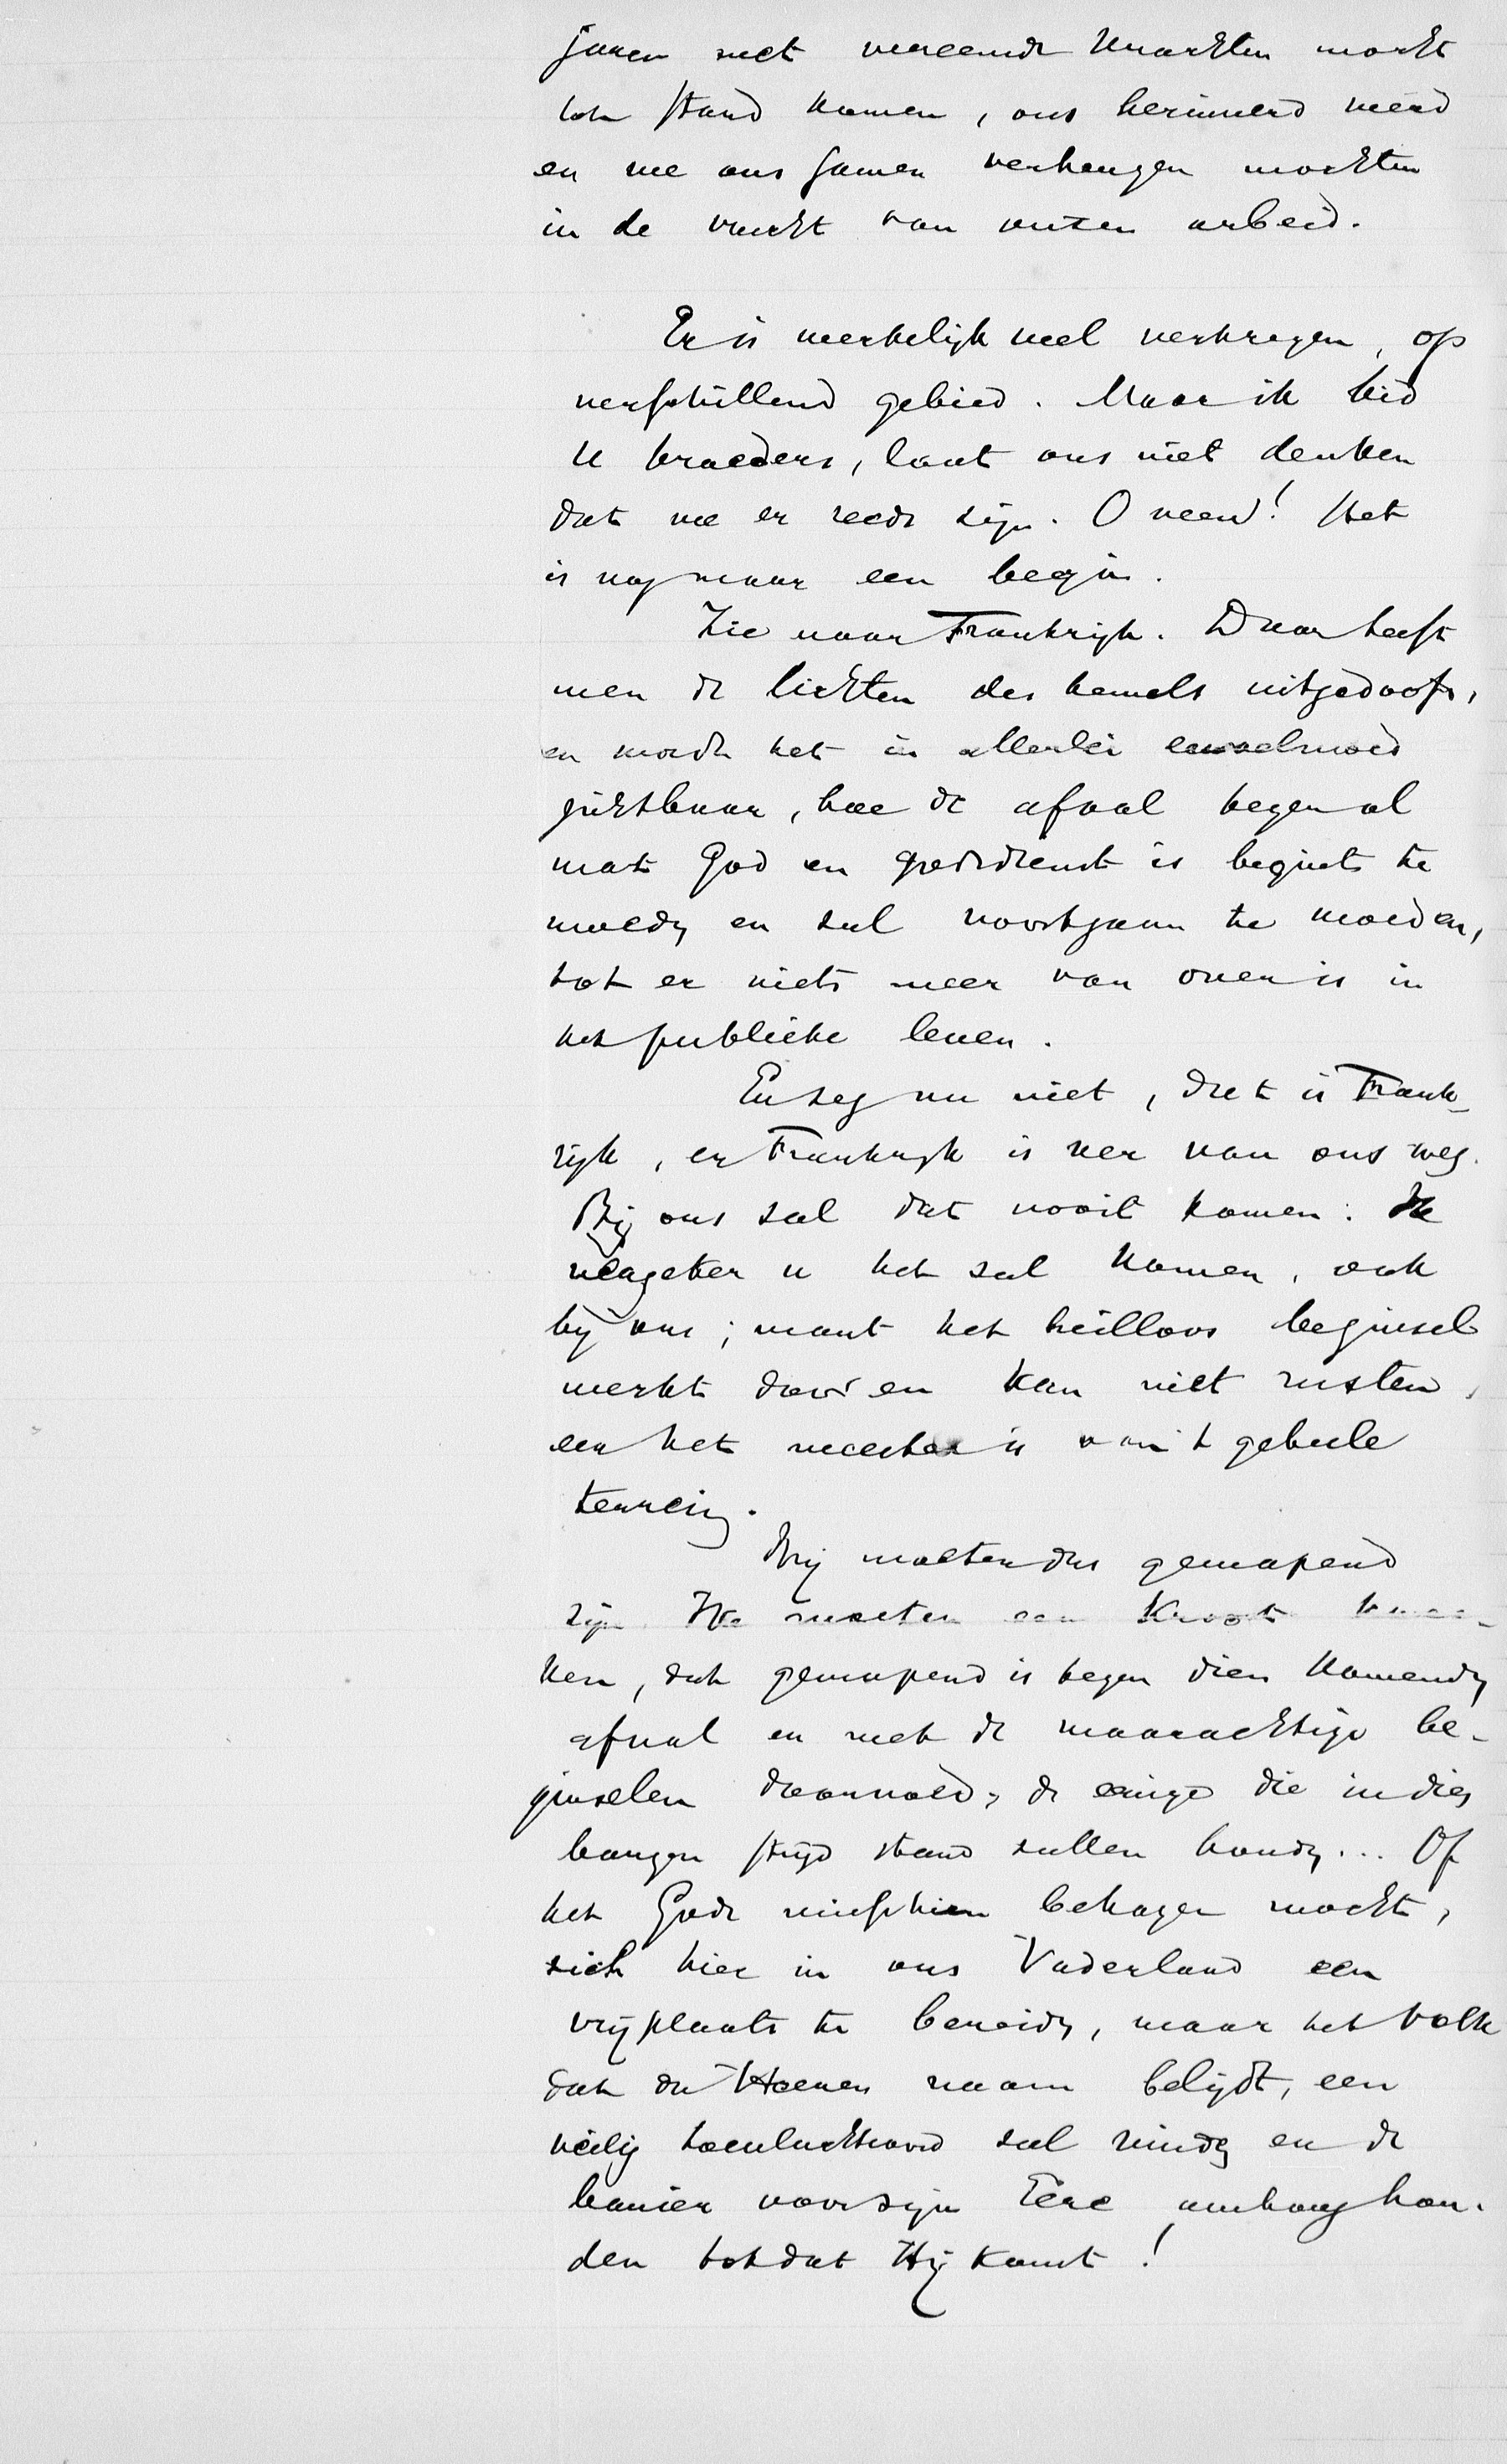 jaren met vereende krachten mocht
tot stand komen, ons herinnerd werd
en we ons samen verheugen mochten
in de vrucht van onzen arbeid.
Er is werkelijk veel verkregen, op
verschillend gebied. Maar ik bid
U broeders, laat ons niet denken
dat we er reeds zijn. O neen! Het
is nog maar een begin.
Zie naar Frankrijk. Daar heeft
men de lichten des hemels uitgedoofd,
en wordt het in allerlei euvelmoed
zichtbaar, hoe de afval tegen al
wat God en godsdienst is begint te
woeden en zal voortgaan te woeden,
tot er niets meer van over is in
het publieke leven.
En zeg nu niet, dat is Frank-
rijk, en Frankrijk is ver van ons weg.
Bij ons zal dat nooit komen. Ik
verzeker u het zal komen, ook
bij ons; want het heilloos beginsel
werkt door en kan niet rusten,
eer het meester is van 't geheele
terrein.
Wij moeten dus gewapend
zijn. We moeten een kroost kwee-
ken, dat gewapend is tegen dien komenden
afval en met de waarachtige be-
ginselen doorvoed, de eenige die in dien
bangen strijd stand zullen houden... Of
het Gode misschien behagen mocht,
zich hier in ons Vaderland een
vrijplaats te bereiden, waar het volk
dat des Heeren naam belijdt, een
veilig toevluchtsoord zal vinden en de
banier voor zijn Eere omhoog hou-
den totdat Hij komt!